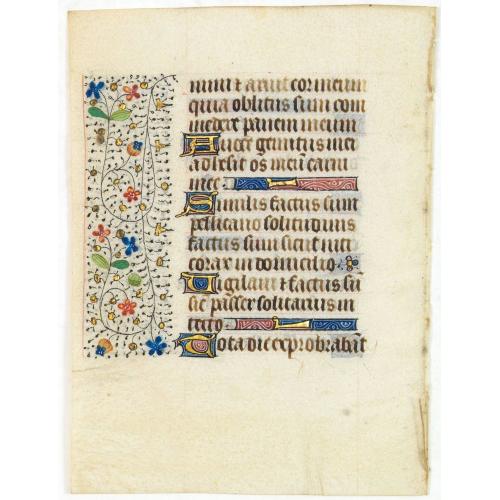 num ⁊ aruit cor meum
quia oblitus sum com
medere panem meum
A uoce gemitus mei
adhesit os meū carni
mee
Similis factus sum
pellicano solitudinis
factus sum sicut nict
corax in domicilio
Vigilaui ⁊ factus sū
sic passer solitarius in
tecto
Tota die exprobrabāt